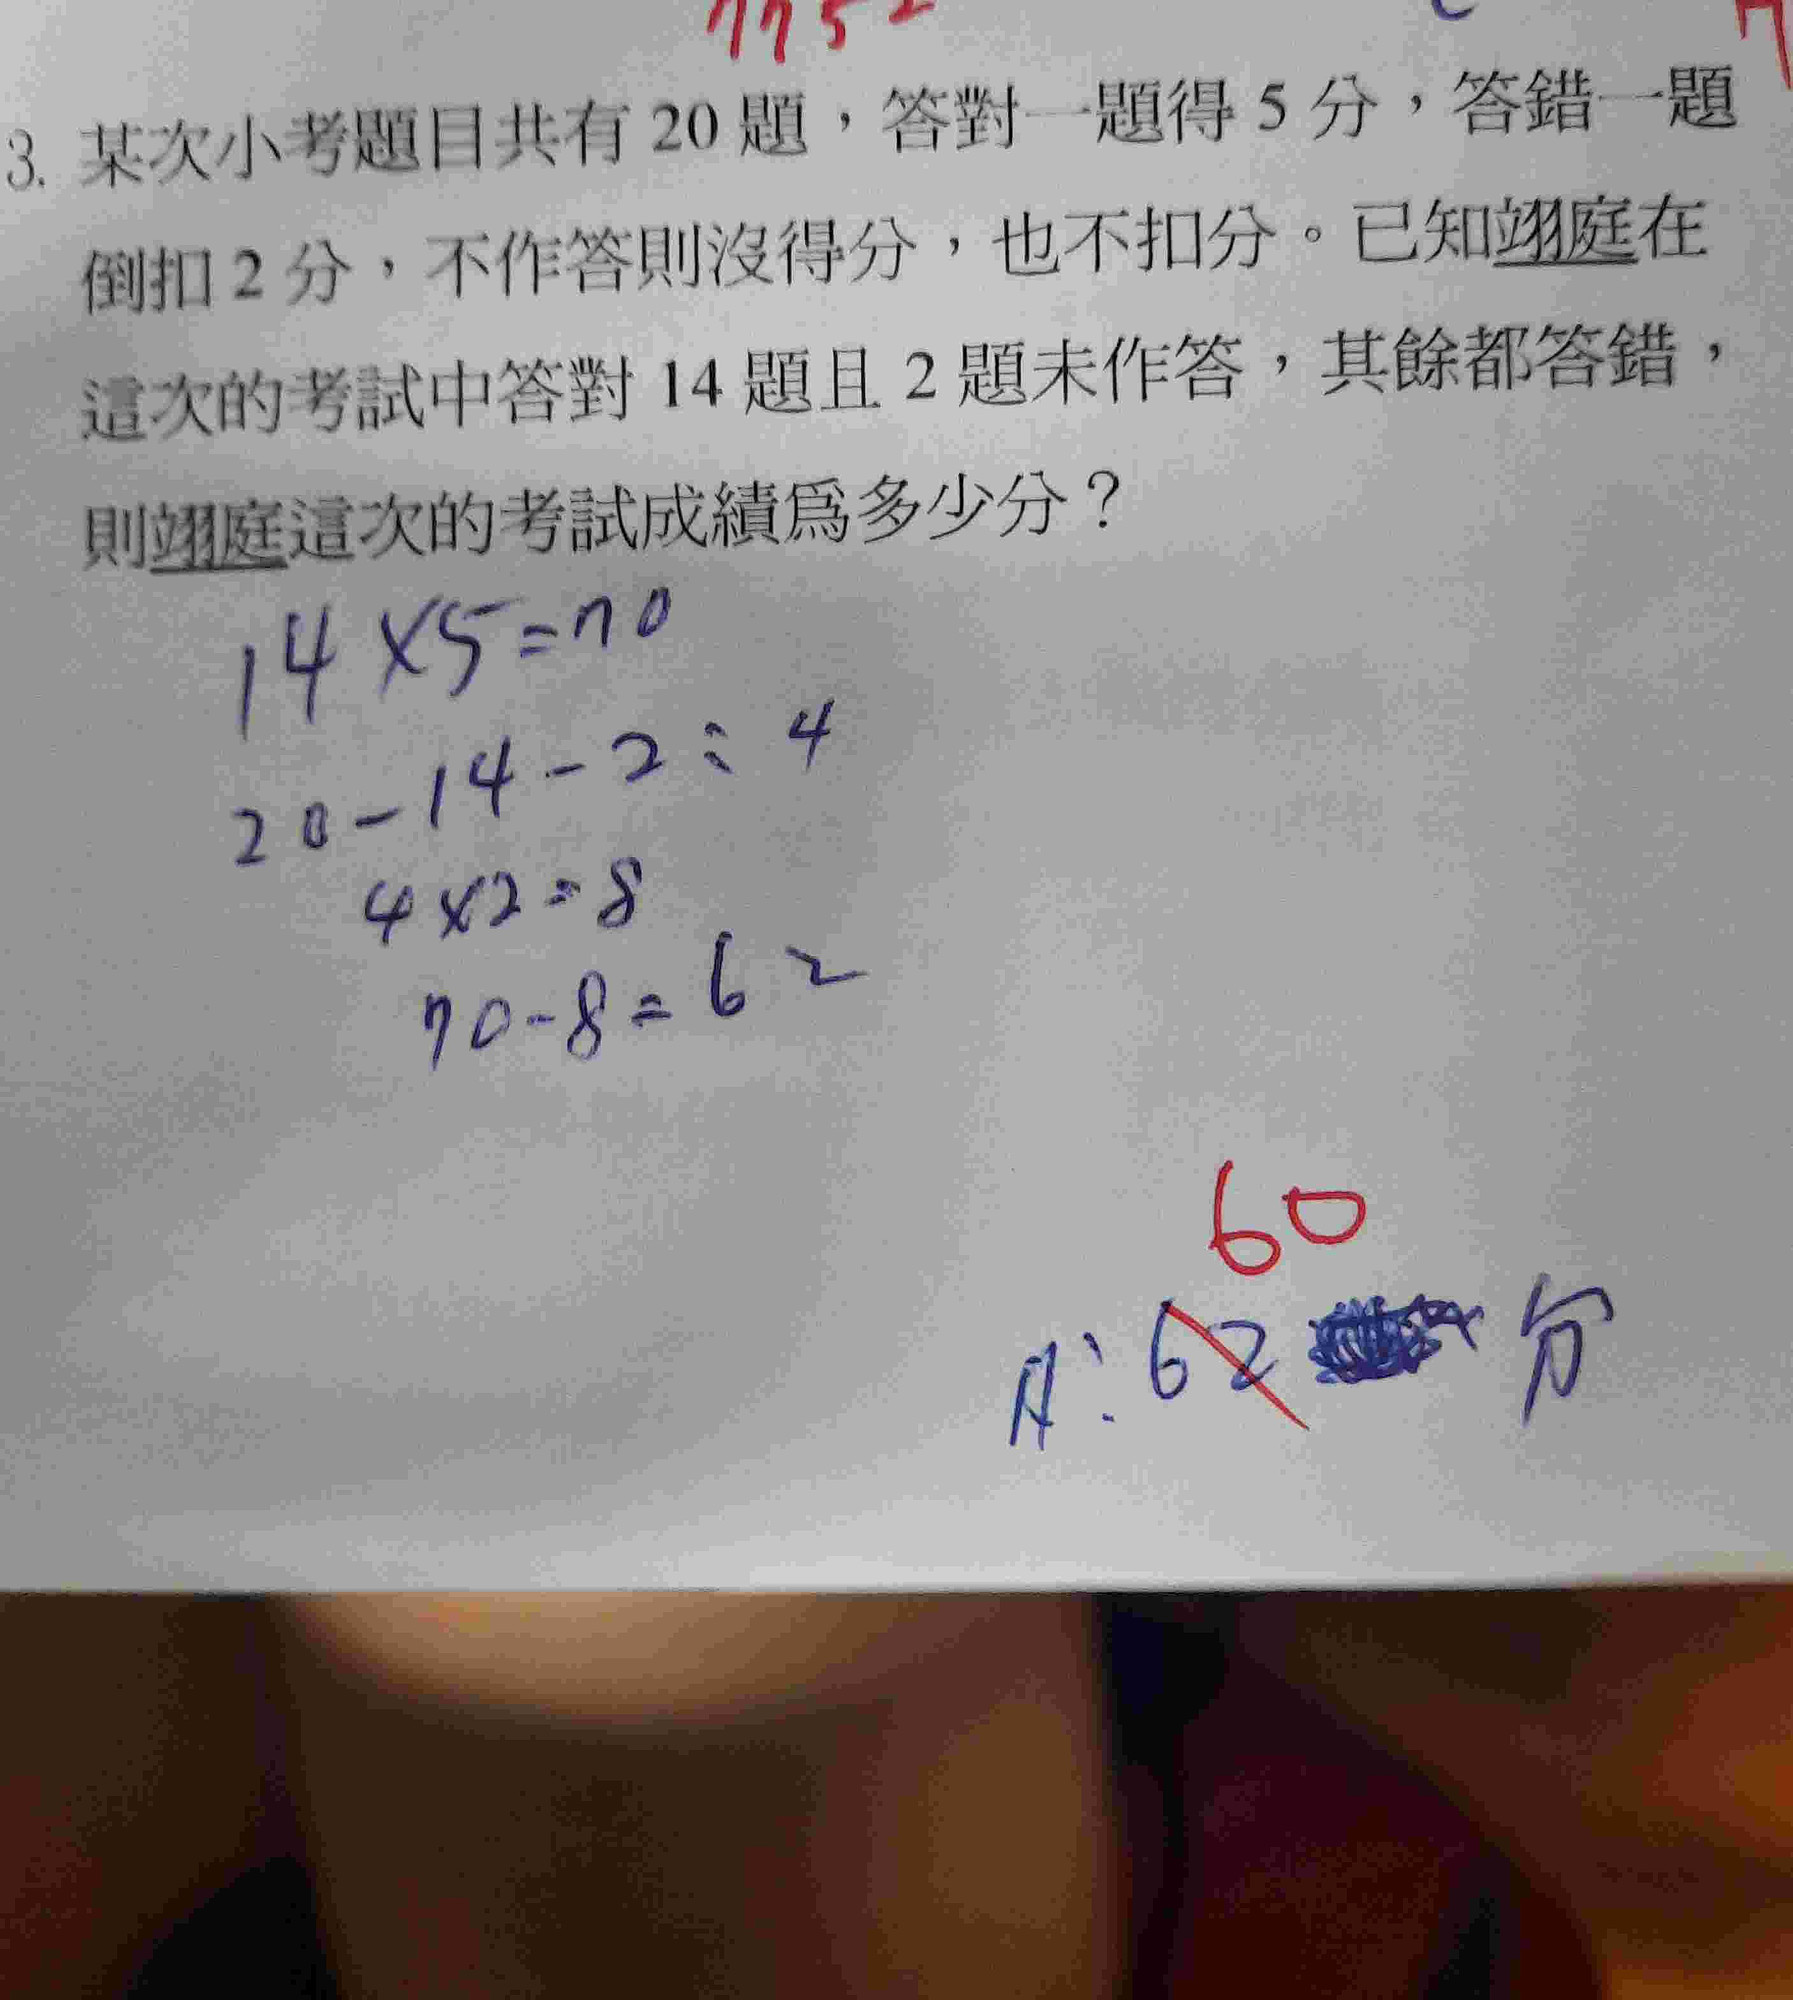 3. 某次小考題目共有 20 題，答對一題得 5 分，答錯一題
倒扣 2 分，不作答則沒得分，也不扣分。已知翊庭在
這次的考試中答對 14 題且 2 題未作答，其餘都答錯，
則翊庭這次的考試成績爲多少分？
14×5=70
20-14-2=4
4×2=8
70-8=62
60
A：62 分